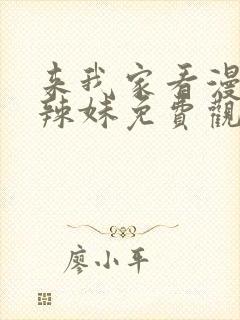 来我家看漫
辣妹免費觀
廖小平